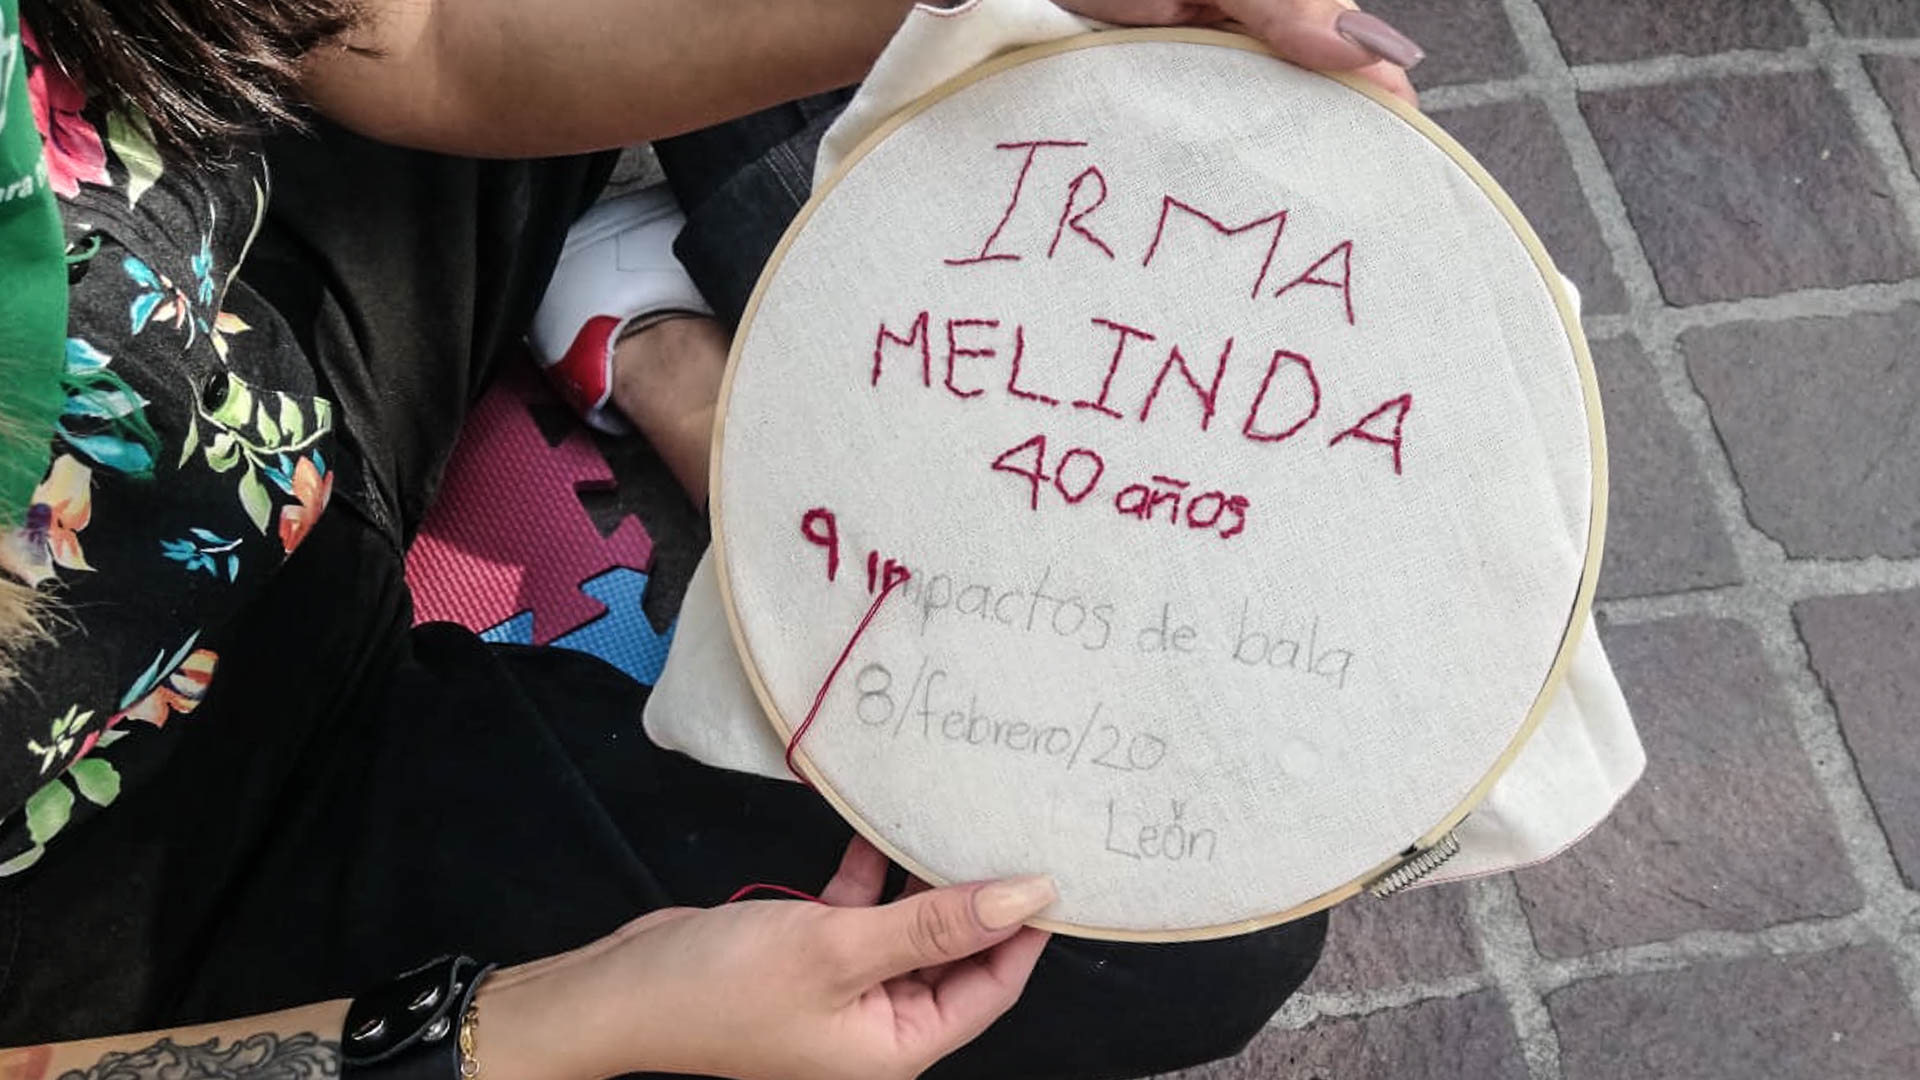 IRMA
MELINDA
40 años
9 impactos de bala
8/febrero/20
León